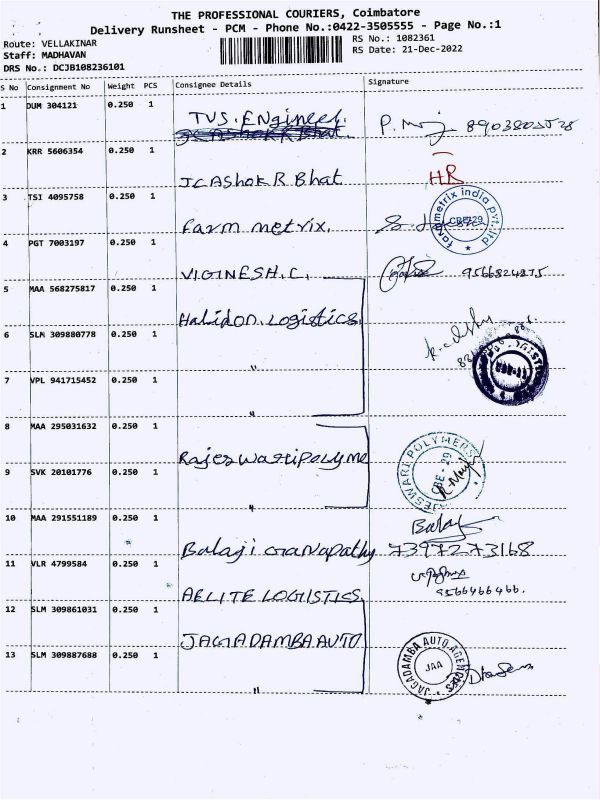 THE PROFESSIONAL COURIERS, Coimbatore
Delivery Runsheet - PCM - Phone No.:0422-3505555 - Page No.:1
Route: VELLAKINAR
RS No.: 1082361
Staff: MADHAVAN
RS Date: 21-Dec-2022
DRS No.: DCJB108236101
S No Consignment No Weight PCS Consignee Details Signature
1 DUM 304121 0.250 1 TVS. ENgineer.
JC Ashok R Bhat
2 KRR 5606354 0.250 1 JC Ashok R Bhat HR
3 TSI 4095758 0.250 1 Farm metrix. farmmetrix india pvt ltd
CBE-29
4 PGT 7003197 0.250 1 VIGINESH.C. 9566824875
5 MAA 568275817 0.250 1 Halidon. Logistics.
6 SLM 309880778 0.250 1 "
7 VPL 941715452 0.250 1 "
8 MAA 295031632 0.250 1 Rajeswaripolyme
9 SVK 20101776 0.250 1 " JESWARI POLYMERS
CBE - 29
10 MAA 291551189 0.250 1 Balaji Ganapathy Balaji
7397273168
11 VLR 4799584 0.250 1 AELITE LOGISTICS. 9566466466.
12 SLM 309861031 0.250 1 JAGADAMBA AUTO
13 SLM 309887688 0.250 1 " JAGADAMBA AUTO AGENCIES
JAA